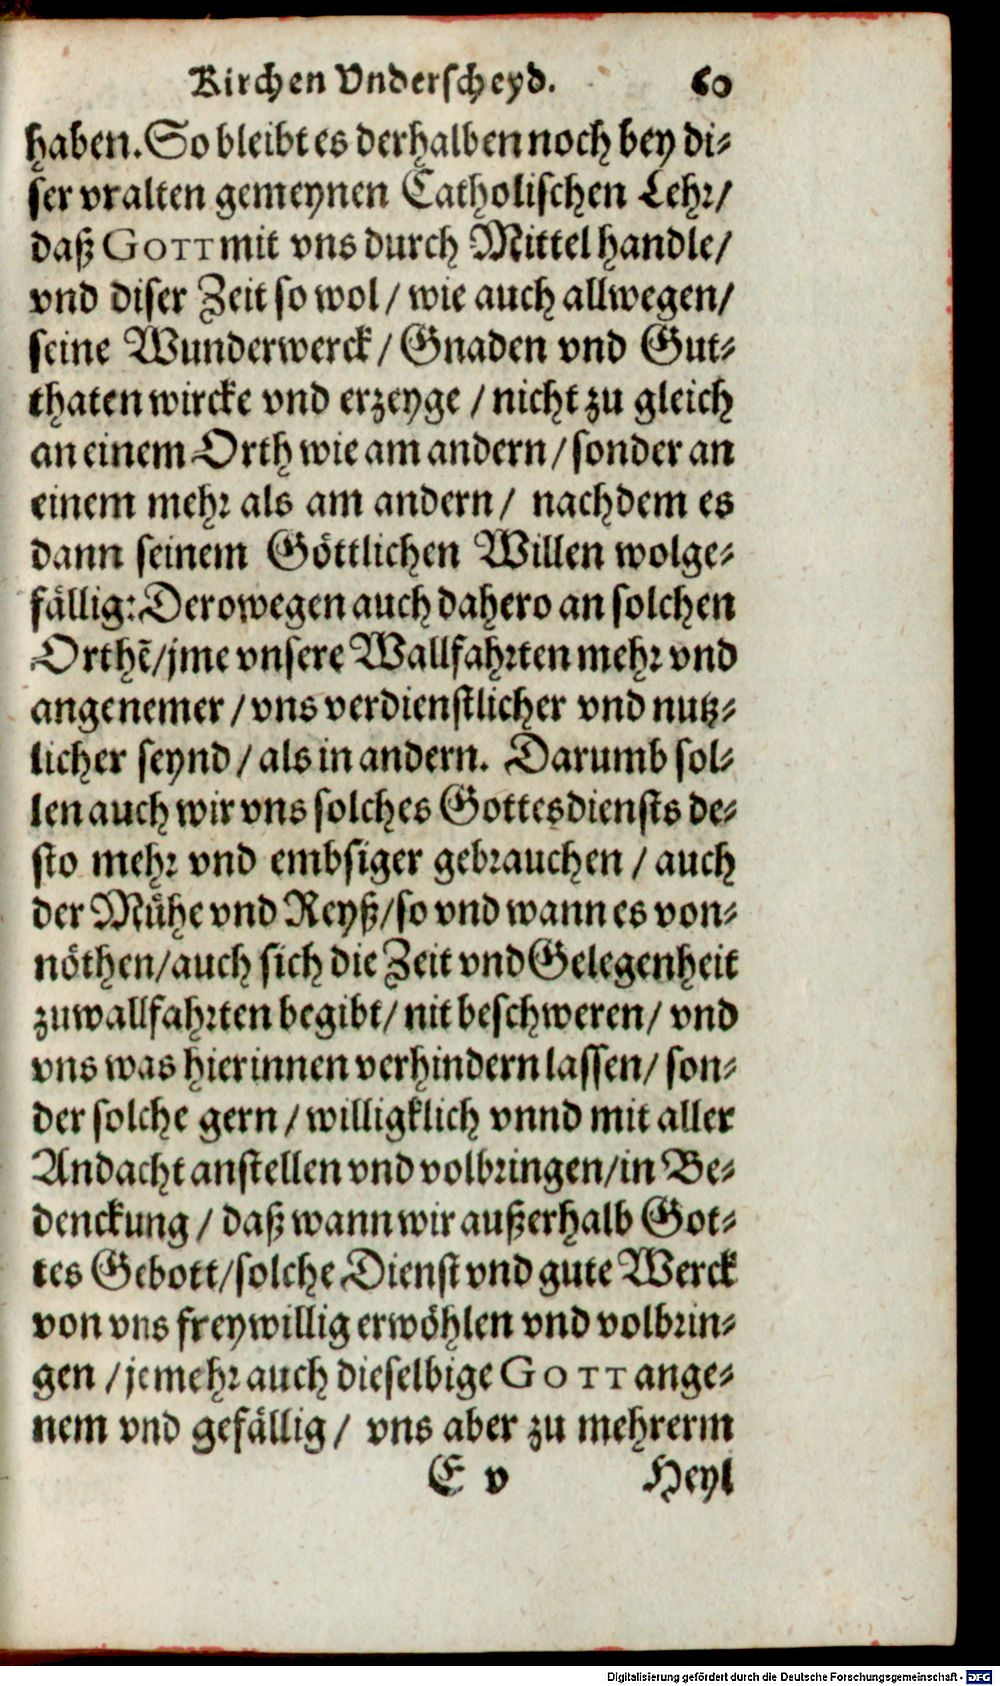 Kirchen Vnderscheyd. 60
haben. So bleibt es derhalben noch bey di-
ser vralten gemeynen Catholischen Lehr/
daß GOTT mit vns durch Mittel handle/
vnd diser Zeit so wol / wie auch allwegen/
seine Wunderwerck / Gnaden vnd Gut-
thaten wircke vnd erzeyge / nicht zu gleich
an einem Orth wie am andern / sonder an
einem mehr als am andern / nachdem es
dann seinem Göttlichen Willen wolge-
fällig: Derowegen auch dahero an solchen
Orthẽ/jme vnsere Wallfahrten mehr vnd
angenemer / vns verdienstlicher vnd nutz-
licher seynd / als in andern. Darumb sol-
len auch wir vns solches Gottesdiensts de-
sto mehr vnd embsiger gebrauchen / auch
der Mühe vnd Reyß/so vnd wann es von-
nöthen/auch sich die Zeit vnd Gelegenheit
zuwallfahrten begibt/ nit beschweren/ vnd
vns was hierinnen verhindern lassen/ son-
der solche gern / willigklich vnnd mit aller
Andacht anstellen vnd volbringen/in Be-
denckung / daß wann wir außerhalb Got-
tes Gebott/solche Dienst vnd gute Werck
von vns freywillig erwöhlen vnd volbrin-
gen / je mehr auch dieselbige GOTT ange-
nem vnd gefällig / vns aber zu mehrerm
E v Heyl
Digitalisierung gefördert durch die Deutsche Forschungsgemeinschaft - DFG